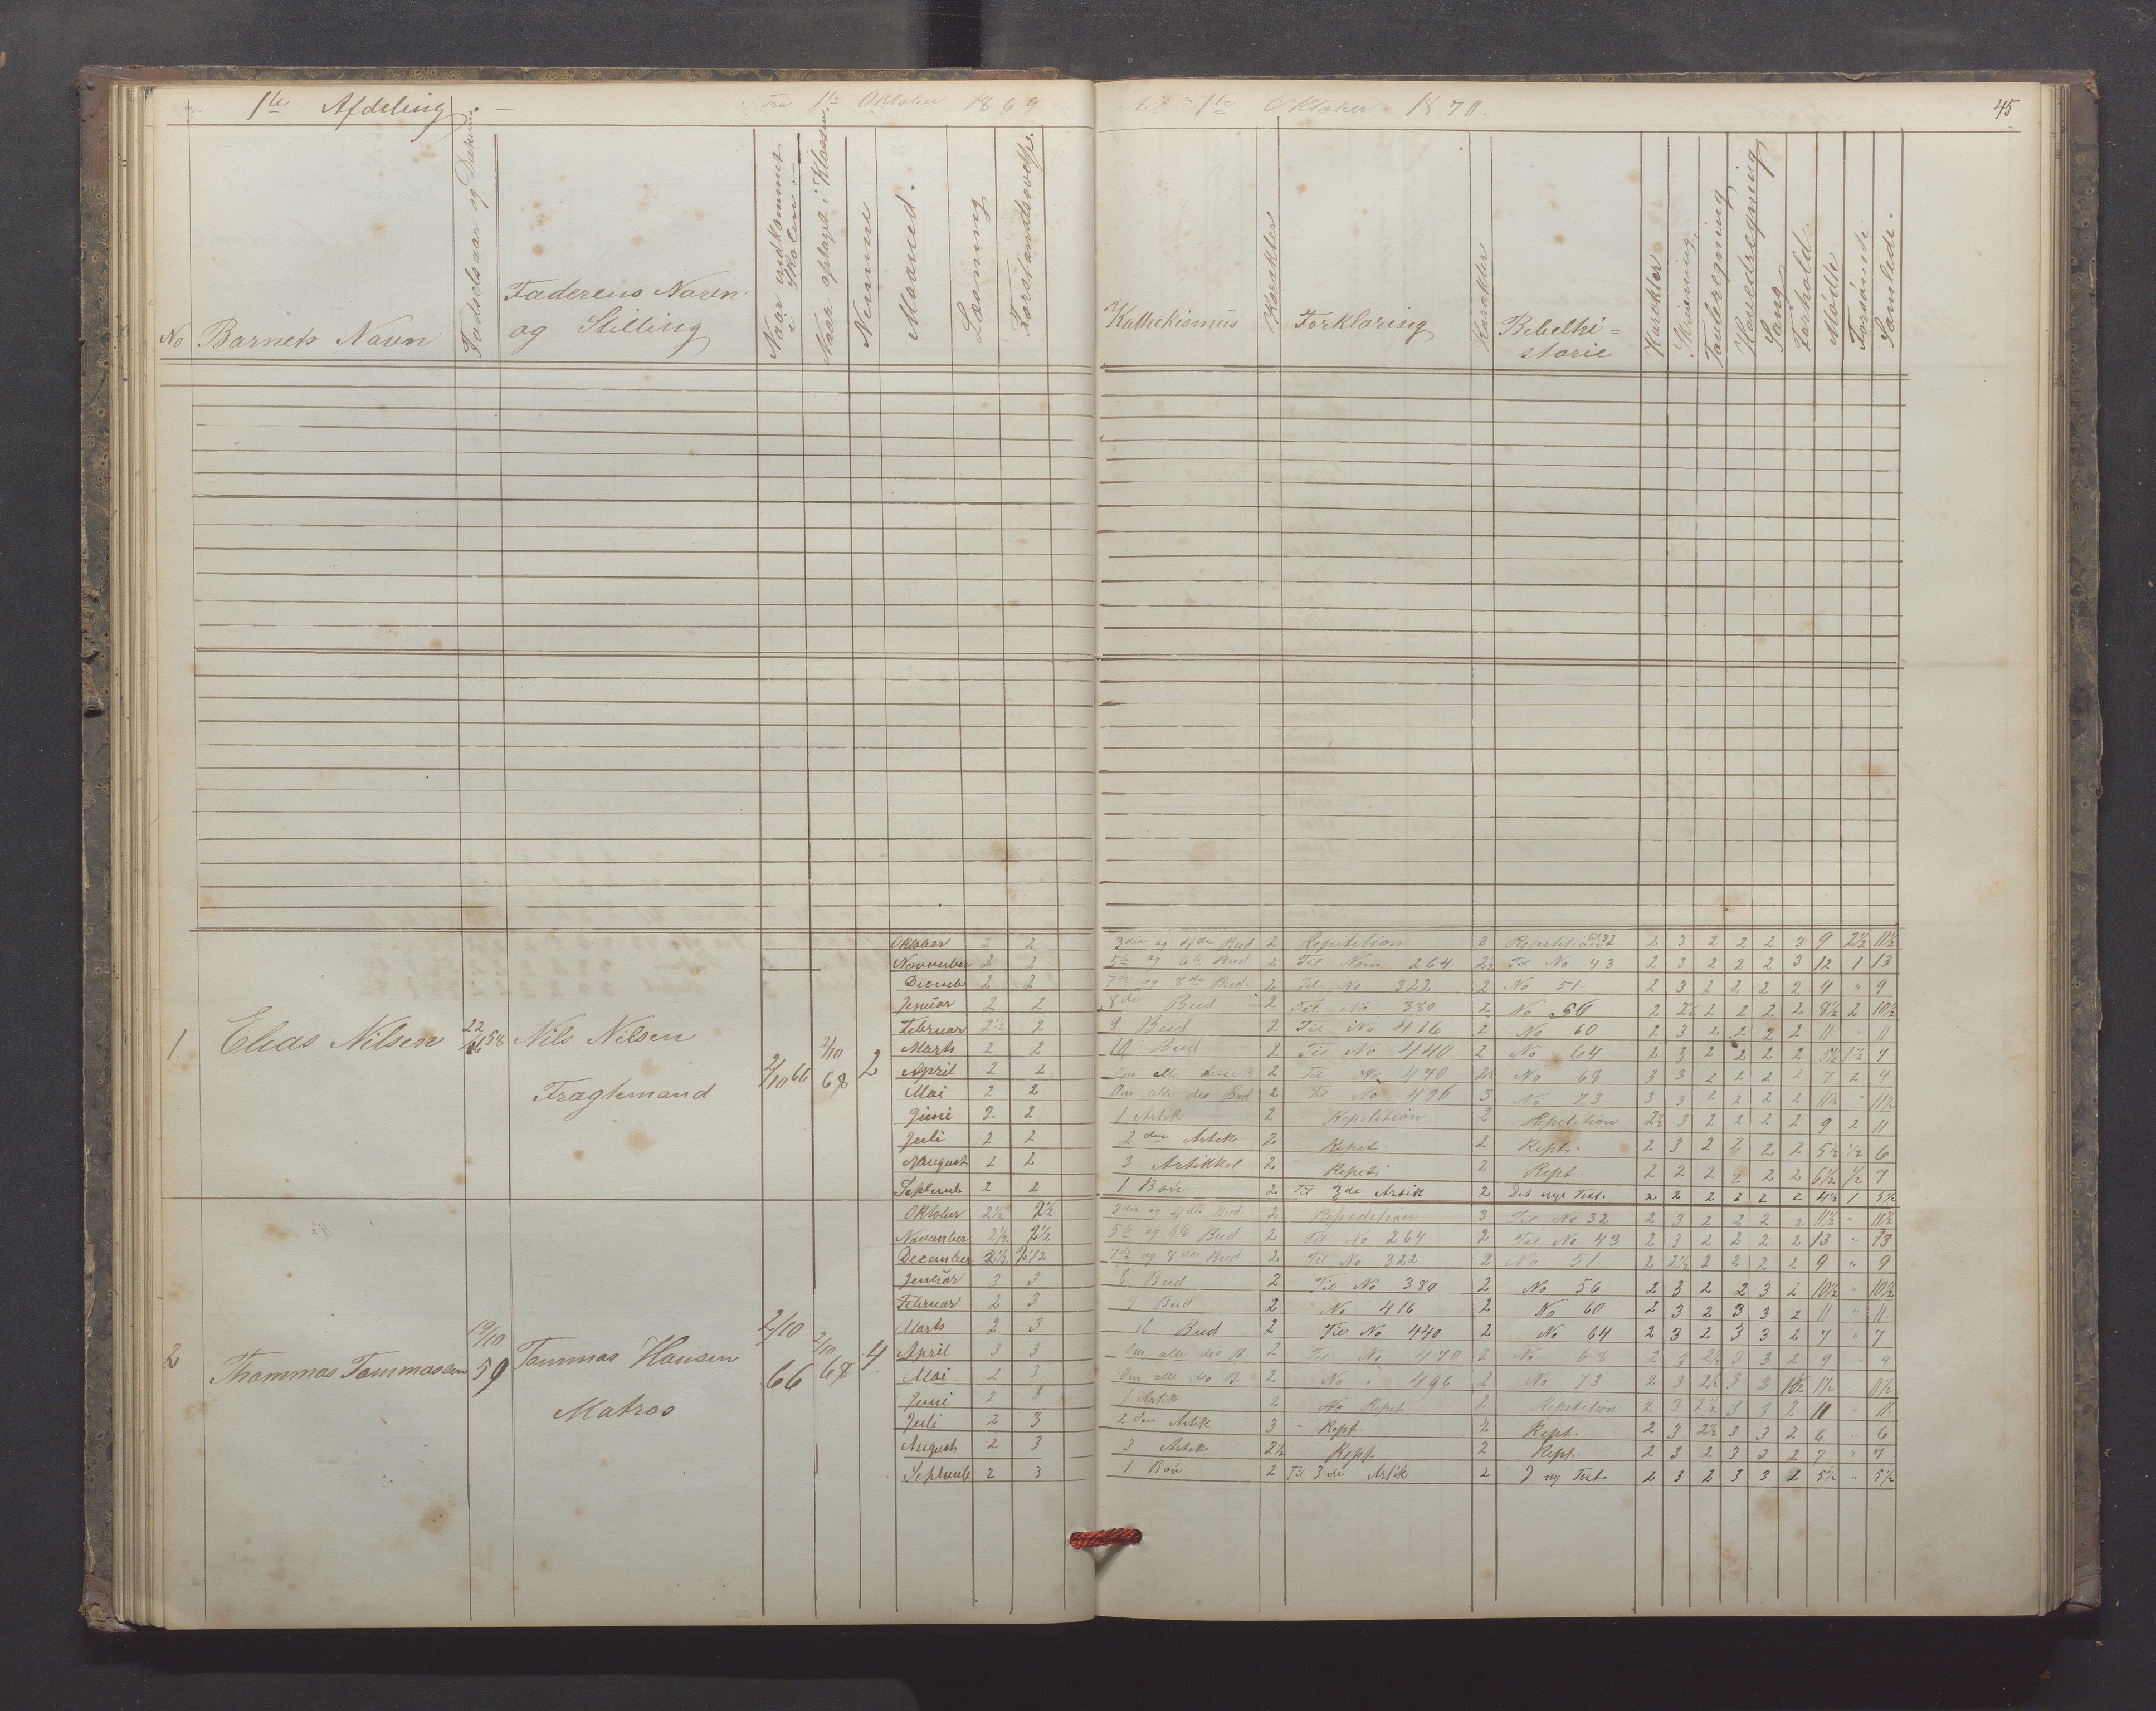 1te Afdeling. — Fra 1te Oktober 1869 til 1te Oktober 1870. 45
No Barnets Navn Fødselsaar og Faderens Navn og Stilling Naar indkommet i Skolen Naar optaget i Klassen Numme Maaned. Læsning Forstandsøvelse. Kathekismus Karakter Forklaring Karakter Bibelhi=storie Karakter Skrivning Tavleregning Hovedregning Sang Forhold Mødte Forsømte Samlede.
1 Elias Nilsen 58 Nils Nilsen Fragtemand 2/10 66 2/10 68 2
Oktober 2 2 3die og 4de Bud 2 Repetition 3 Repetition til 32 2 3 2 2 2 3 9 2½ 11½
November 2 2 5te og 6te Bud 2 Til Nom 264 2½ Til No 43 2 3 2 2 2 3 12 1 13
Decemb 2 2 7de og 8de Bud 2 Til No 322 2 No 51. 2 3 2 2 2 2 9 " 9
Januar 2 2 8de Bud 2 Til No 380 2 No 56 2 2½ 2 2 2 2 8½ 2 10½
Februar 2½ 2 9 Bud 2 Til No 416 2 No 60 2 3 2 2 2 2 11 " 11
Marts 2 2 10 Bud 2 Til No 440 2 No 64 2 3 2 2 2 2 5½ 1½ 7
April 2 2 Om alle disse B 2 Til No 470 2½ No 68 3 3 2 2 2 2 7 2 9
Mai 2 2 Om alle des Bud 2 Til No 496 3 No 73 3 3 2 2 2 2 11½ " 11½
Juni 2 2 1 Artik 2 Repetition 2 Repetition 2½ 3 2 2 2 2 9 2 11
Juli 2 2 2den Artik 2 Repet. 2 Rept. 2 3 2 2 2 2 5½ ½ 6
August 2 2 3 Artikkel 2 Repet. 2 Rept. 2 2 2 2 2 2 6½ ½ 7
Septemb 2 2 1 Bøn 2 Til 3de Artik 2 Det nye Test. 2 2 2 2 2 2 4½ 1 5½
2 Thommas Tommassen 19/10 59 Tommas Hansen Matros 2/10 66 2/10 68 4.
Oktober 2½ 2½ 3die og 4de Bud 2 Repetition 3 Til No 32 2 3 2 2 2 2 11½ " 11½
November 2½ 2½ 5te og 6te Bud 2 Til No 264 2 Til No 43 2 3 2 2 2 2 13 " 13
December 2½ 2½ 7de og 8de Bud 2 Til No 322 2 No 51. 2 2½ 2 2 2 2 9 " 9
Januar 3 3 8 Bud 2 Til No 380 2 No 56 2 3 2 2 3 2 10½ " 10½
Februar 2 3 9 Bud 2 No 416 2 No 60 2 3 2 3 3 2 11 " 11.
Marts 2 3 10 Bud 2 Til No 440 2 No 64 2 3 2 3 3 2 7 " 7
April 3 3 Om alle des B. 2 Til No 470 2 No 68 2 3 2½ 3 3 2 9 " 9
Mai 2 3 Om alle des B. 2 No " 496 2 No 73 2 3 2½ 3 3 11½
Juni 2 3 1 Artik 2 No Rept. 2 Repetition 2 3 2½ 3 3 2 11 " 11
Juli 2 3 2den Artik 3 Rept. 2 Rept. 2 3 2½ 3 3 2 6 " 6
August 2 3 3 Artik 2½ Rept 2 Rept. 2 3 2 3 3 2 7 " 7
Septemb 2 3 1 Bøn 2 Til 3de Artik 2 D ny Test. 2 3 2 3 3 2 5½ " 5½